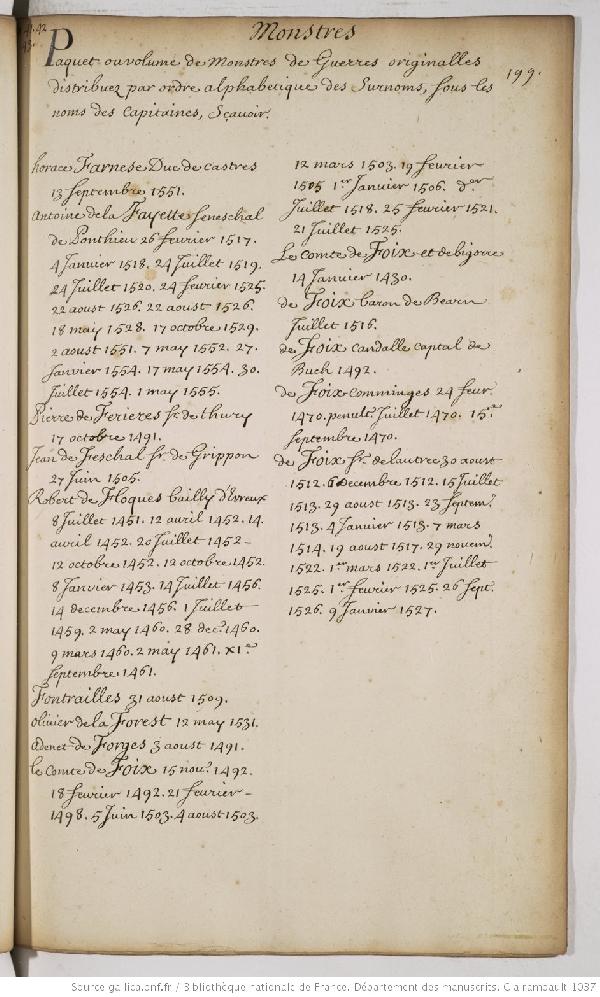 Monstres
41.42
43.
Paquet ou volume de Monstres de Guerres originalles
199.
distribuez par ordre alphabetique des Surnoms, sous les
noms des Capitaines, Sçavoir.
horace Farnese Duc de castres
13 septembre 1551.
Antoine de la Fayette seneschal
de Ponthieu 26 fevrier 1517.
4 Janvier 1518. 24 Juillet 1519.
24 Juillet 1520. 24 fevrier 1525.
22 aoust 1526. 22 aoust 1526.
18 may 1528. 17 octobre 1529.
2 aoust 1551. 7 may 1552. 27.
Janvier 1554. 17 may 1554. 30.
Juillet 1554. 1 may 1555.
Pierre de Ferieres sr. de thury
17 octobre 1491.
Jean de Feschal sr. de Grippon
27 Juin 1505.
Robert de Floques bailly d'Evreux
8 Juillet 1451. 12 avril 1452. 14.
avril 1452. 20 Juillet 1452 -
12 octobre 1452. 12 octobre 1452.
8 Janvier 1453. 14 Juillet 1456.
14 decembre 1456. 1 Juillet
1459. 2 may 1460. 28 dec. 1460.
9 mars 1460. 2 may 1461. XI.e
septembre 1461.
Fontrailles 31 aoust 1509.
olivier de la Forest 12 may 1531.
Adenet de Forges 3 aoust 1491.
le Comte de Foix 15 nov. 1492.
18 fevrier 1492. 21 fevrier -
1498. 5 Juin 1503. 4 aoust 1503.
12 mars 1503. 19 fevrier
1505 1er Janvier 1506. der
Juillet 1518. 25 fevrier 1521.
21 Juillet 1525.
Le comte de Foix et de bigorre
14 Janvier 1430.
de Foix baron de Bearn
Juillet 1516.
de Foix candalle captal de
Buch 1492.
de Foix comminges 24 fevr.
1470. penult. Juillet 1470. 15e
septembre 1470.
de Foix sr. de lautrec 30 aoust
1512. 6 decembre 1512. 15 Juillet
1513. 29 aoust 1513. 23 septem.
1513. 4 Janvier 1513. 7 mars
1514. 19 aoust 1517. 29 novem.
1522. 1er mars 1522. 1er Juillet
1525. 1er fevrier 1525. 26 sept.
1526. 9 Janvier 1527.
Source gallica.bnf.fr / Bibliothèque nationale de France. Département des manuscrits. Clairambault 1037